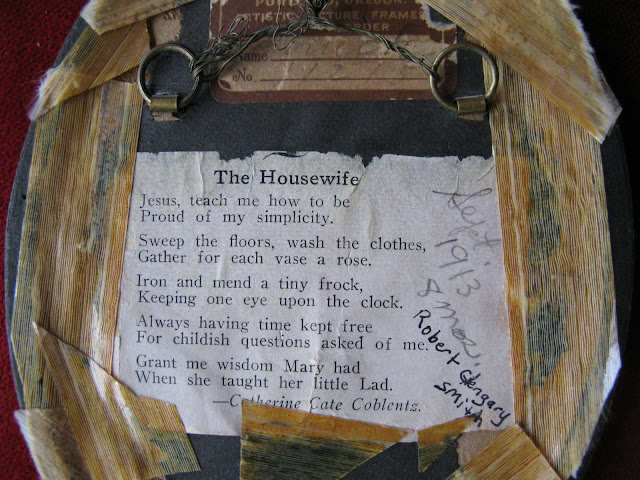 PORTLAND, OREGON.
ARTISTIC PICTURE FRAMES
ORDER
Name
No.
The Housewife
Jesus, teach me how to be
Proud of my simplicity.
Sweep the floors, wash the clothes,
Gather for each vase a rose.
Iron and mend a tiny frock,
Keeping one eye upon the clock.
Always having time kept free
For childish questions asked of me.
Grant me wisdom Mary had
When she taught her little Lad.
—Catherine Cate Coblentz.
Sept.
1913
8 mos.
Robert
Smith